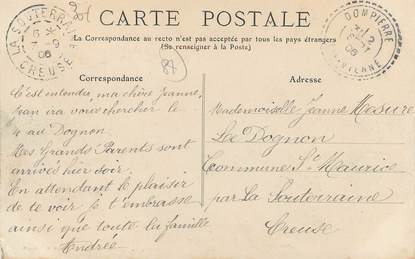 CARTE POSTALE
La Correspondance au recto n'est pas acceptée par tous les pays étrangers
(Se renseigner à la Poste)
LA SOUTERRAINE
CREUSE
DOMPIERRE
Hte VIENNE
87
Correspondance
Adresse
C'est entendu, ma chère Jeanne,
Jean ira vous chercher le
4 au Dognon
Mes Grands Parents sont
arrivés hier soir.
En attendant le plaisir
de te voir je t'embrasse
ainsi que toute la famille
Andrée
Mademoiselle Jeanne Mesure
Le Dognon
Commune St Maurice
par La Souterraine
Creuse